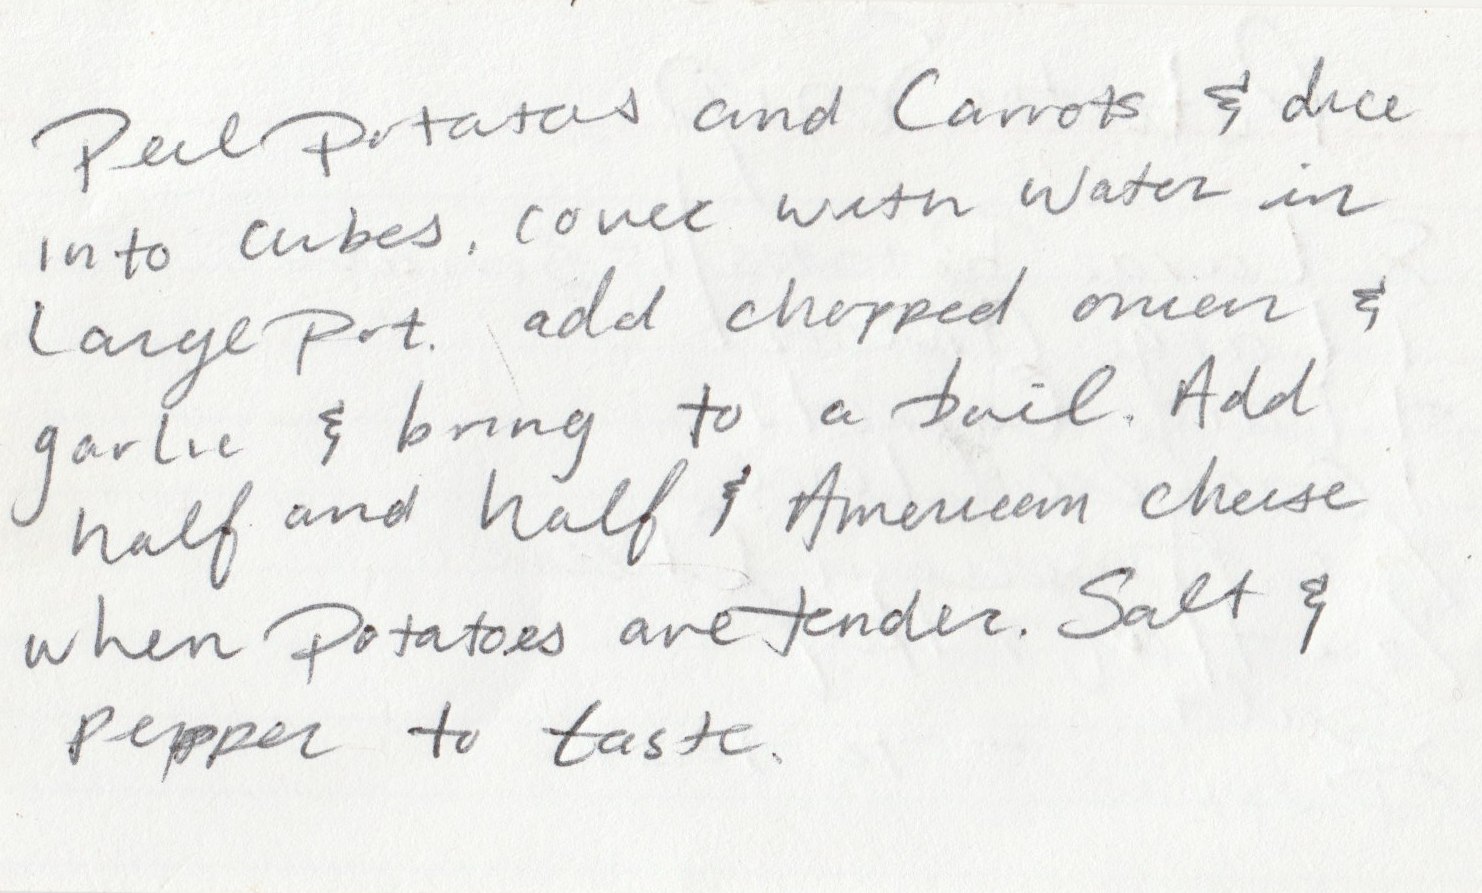 Peel Potatoes and Carrots & dice
into cubes, cover with water in
Large Pot. add chopped onion &
garlic & bring to a boil. Add
half and half & American cheese
when Potatoes are tender. Salt &
pepper to taste.